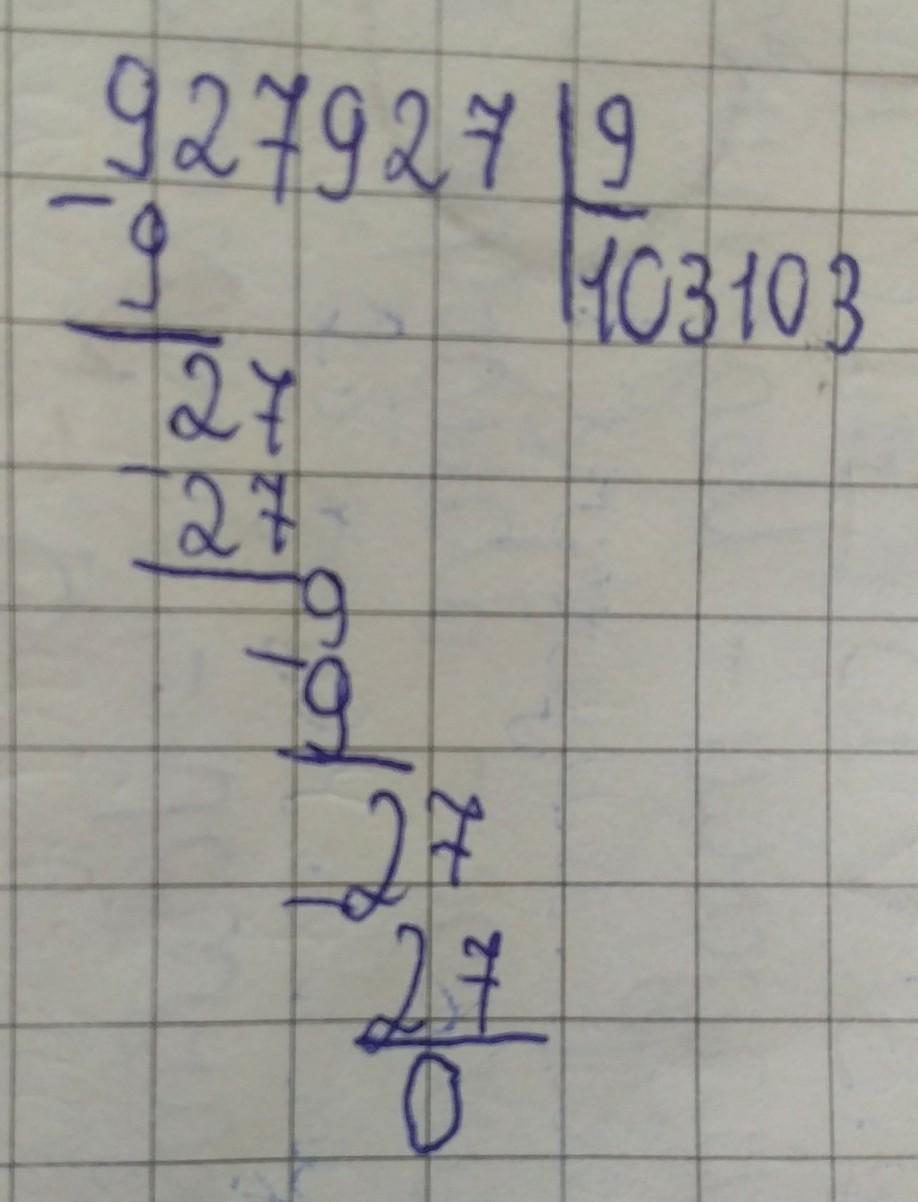 927927 | 9
- 9
103103
27
- 27
9
- 9
27
- 27
0